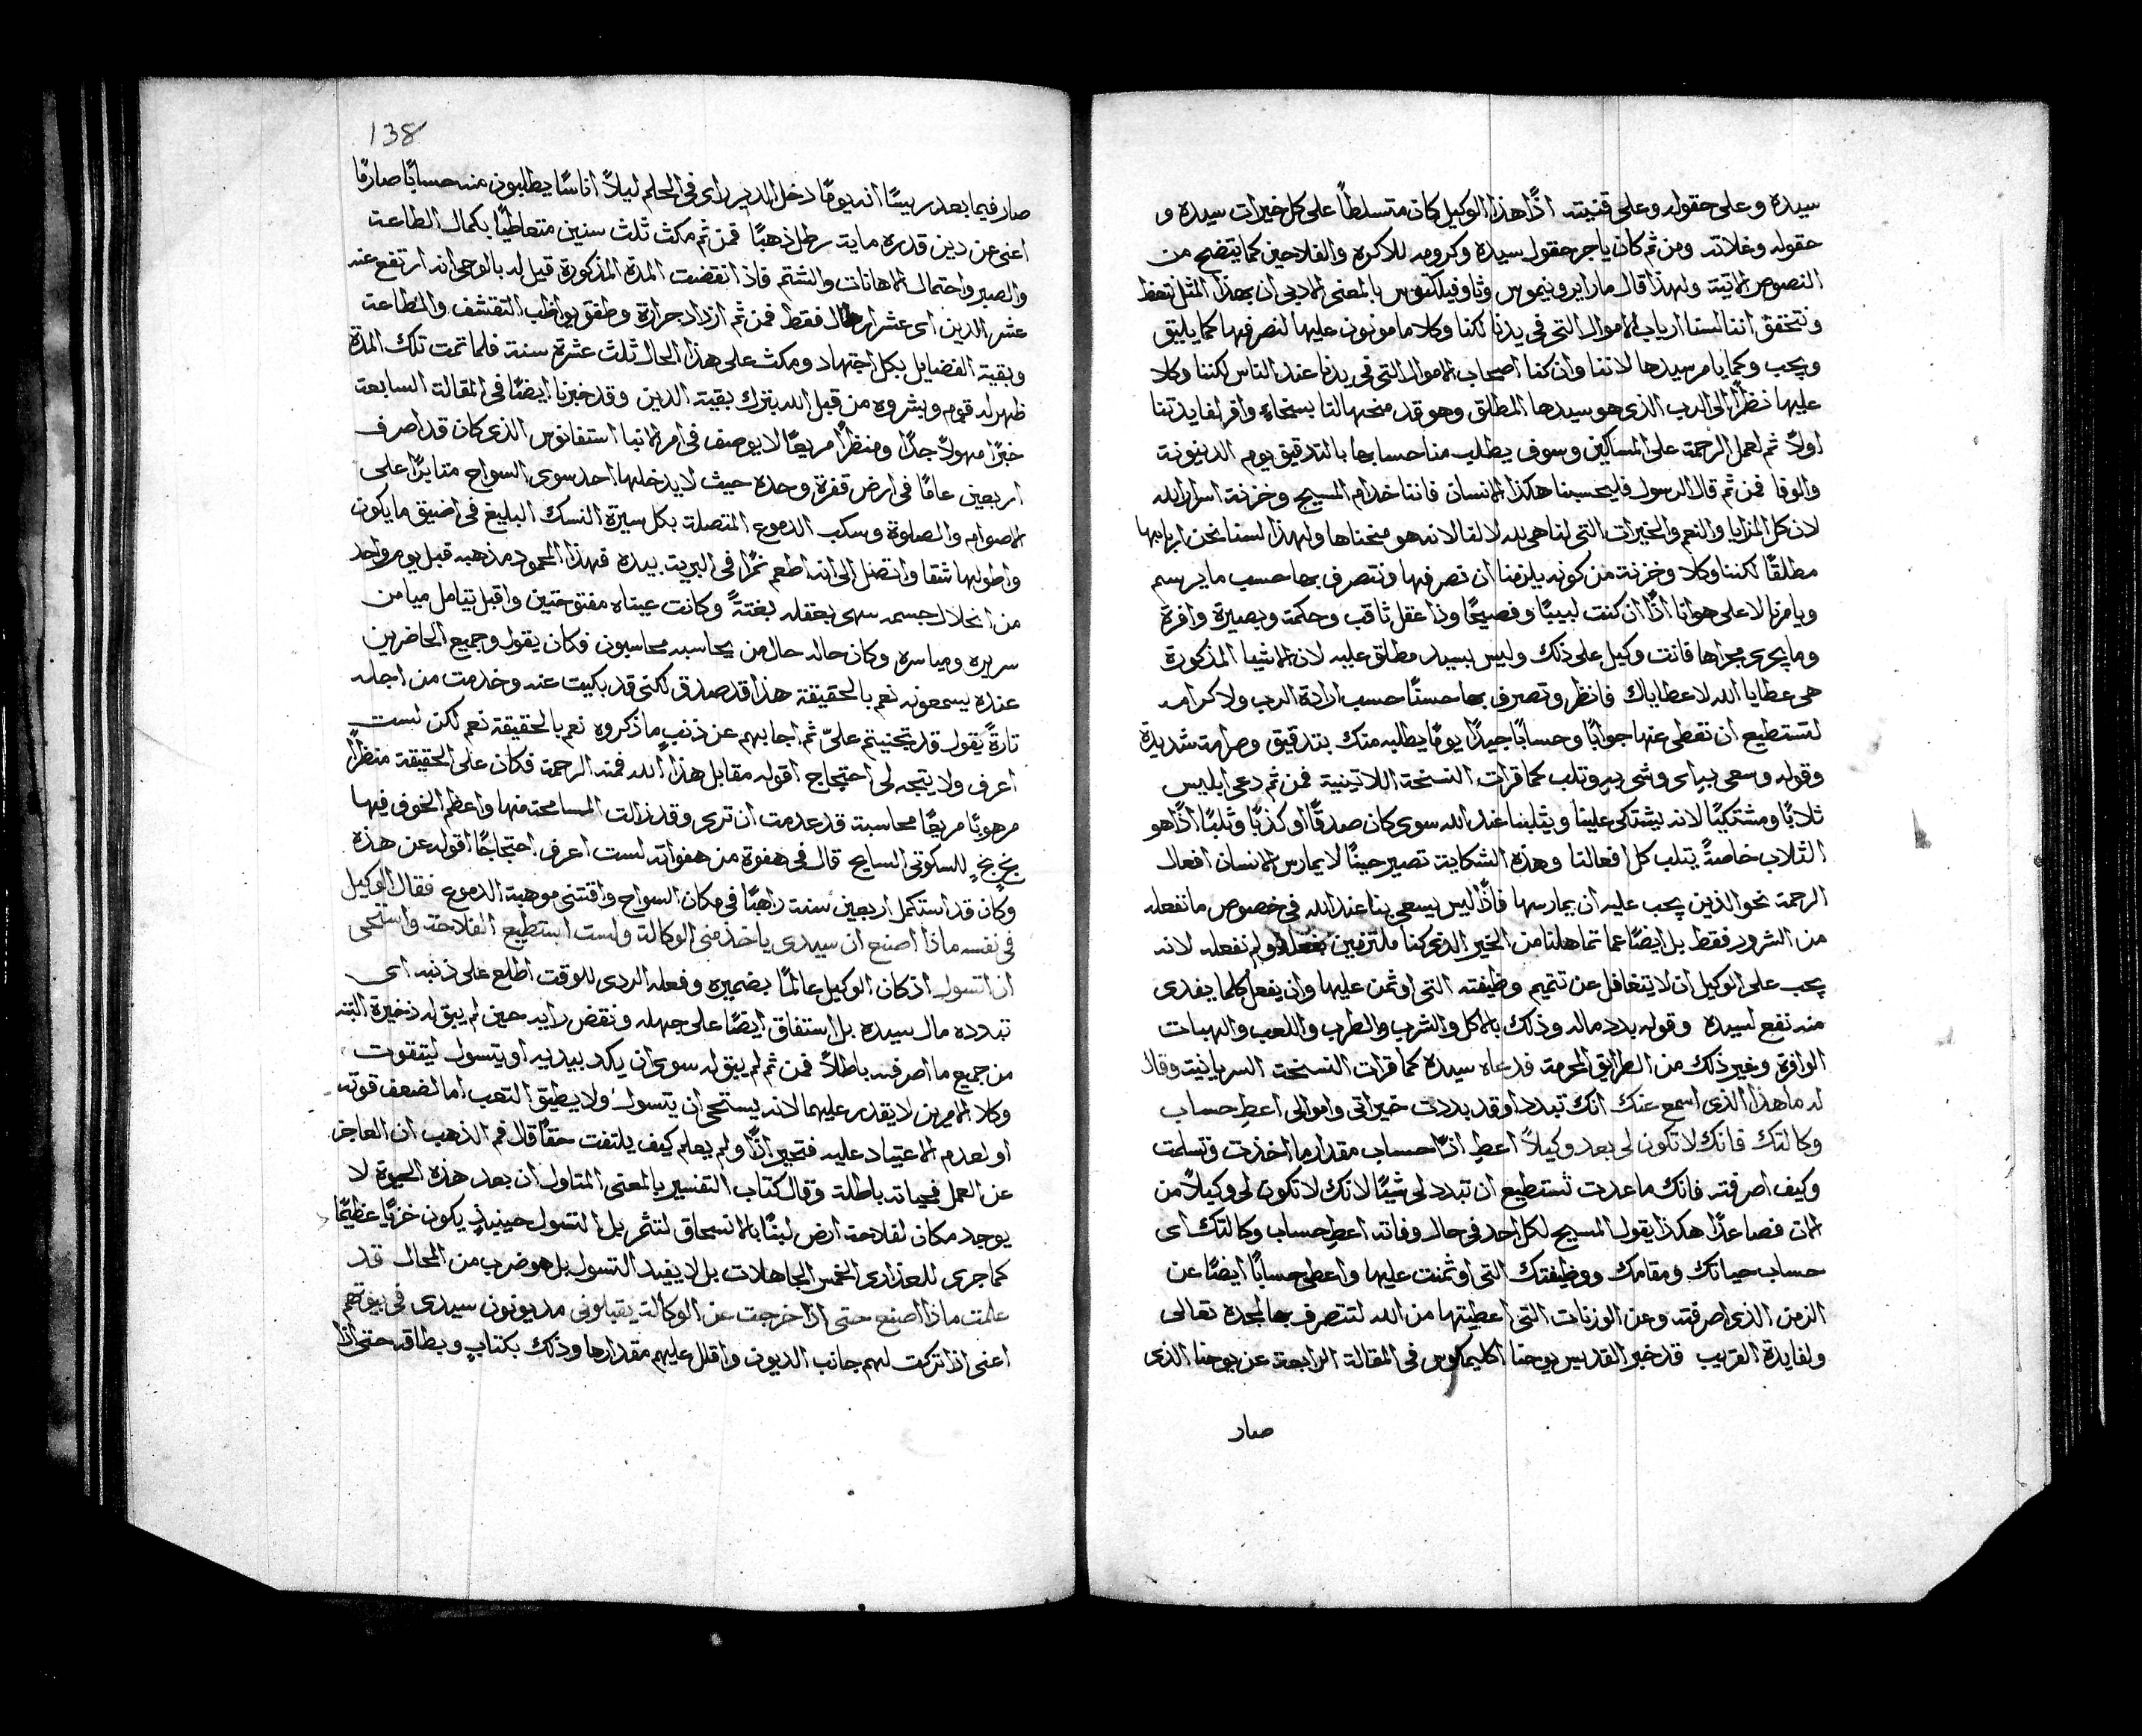 سيده وعلى حقوله وعلى قنيته اذًا هذا الوكيل كان متسلطاً على كل خيرات سيده و
حقوله وغلاته ومن ثم كان ياجر حقول سيده وكرومه للاكره والفلاحين كما يتضح من
النصوص الاتية ولهذا قال مار ايرونيموس وثاوفيلكتوس بالمعنى الادبى ان بهذا المثل نتعظ
ونتحقق اننا لسنا ارباب الاموال التى فى يدنا لكننا وكلا مامونون عليها لنصرفها كما يليق
ويجب وكما يامر سيدها لاننا وان كنا اصحاب الاموال التى فى يدنا عند الناس لكننا وكلا
عليها نظرًا الى الرب الذى هو سيدها المطلق وهو قد منحها لنا بسخاءٍ وافر لفايدتنا
اولاً ثم لعمل الرحمة على المساكين وسوف يطلب منا حسابها بالتدقيق يوم الدينونة
والوفا فمن ثم قال الرسول فليحسبنا هكذا الانسان فاننا خدام المسيح وخزنة اسرار الله
لان كل المزايا والنعم والخيرات التى لنا هى لله لا لنا لانه هو منحناها ولهذا لسنا نحن اربابها
مطلقًا لكننا وكلا وخزنة من كونه يلزمنا ان نصرفها ونتصرف بها حسب ما يرسم
ويامرنا لا على هوانا اذًا ان كنت لبيبًا وفصيحًا وذا عقل ثاقب وحكمة وبصيرة وافرة
وما يجرى مجراها فانت وكيل على ذلك وليس بسيد مطلق عليه لان الاشيا المذكورة
هى عطايا الله لا عطاياك فانظر وتصرف بها حسنًا حسب ارادة الرب ولاكرامه
لتستطيع ان تعطى عنها جوابًا وحسابًا جيدًا يومًا يطلبه منك بتدقيق وصرامة شديدة
وقوله وسعى به اى وشى به وثلب كما قرات النسخة اللاتينية فمن ثم دعى ابليس
ثلابًا ومشتكيًا لانه يشتكى علينا ويثلبنا عند الله سوى كان صدقًا او كذبًا وثلبًا اذًا هو
الثلاب خاصةً يثلب كل افعالنا وهذه الشكاية تصير حينًا لا يمارس الانسان افعال
الرحمة نحو الذين يجب عليه ان يمارسها فاذًا ليس يسعى بنا عند الله فى خصوص ما نفعله
من الشرور فقط بل ايضًا عما تماهلنا من الخير الذى كنا ملتزمين بفعله ولم نفعله لانه
يجب على الوكيل ان لا يتغافل عن تتميم وظيفته التى اوتمن عليها وان يفعل كلما يفدى
منه نفع لسيده وقوله بدد ماله وذلك بالاكل والشرب والطرب واللعب والهبات
الوافرة وغير ذلك من الطرايق المحرمة فدعاه سيده كما قرات النسخة السريانية وقال
له ما هذا الذى اسمع عنك انك تبدد او قد بددت خيراتى واموالى اعطِ حساب
وكالتك فانك لا تكون لى بعد وكيلاً اعطِ اذًا حساب مقدار ما اخذت وتسلمت
وكيف اصرفته فانك ما عدت تستطيع ان تبدد لى شيًا لانك لا تكون لى وكيلاً من
الان فصاعدًا هكذا يقول المسيح لكل احد فى حال وفاته اعطِ حساب وكالتك اى
حساب حياتك ومقامك ووظيفتك التى اوتمنت عليها واعطى حسابًا ايضًا عن
الزمن الذى اصرفته وعن الوزنات التى اعطيتها من الله لتتصرف بها لمجده تعالى
ولفايدة القريب قد خبر القديس يوحنا اكليماكوس فى المقالة الرابعة عن يوحنا الذى
صار
138
صار فيما بعد ريسًا انه يومًا دخل الدير راى فى الحلم ليلاً اناسًا يطلبون منه حسابًا صارمًا
اعنى عن دين قدره ماية رطل ذهبًا فمن ثم مكث ثلث سنين متعاطيًا بكمال الطاعة
والصبر واحتمال الاهانات والشتم فاذ انقضت المدة المذكورة قيل له بالوحى انه ارتفع عنه
عشر الدين اى عشر ارطال فقط فمن ثم ازداد حرارة وطفق يواظب التقشف والطاعة
وبقية الفضايل بكل اجتهاد ومكث على هذا الحال ثلث عشرة سنة فلما تمت تلك المدة
ظهر له قوم وبشروه من قبل الله بترك بقية الدين وقد خبرنا ايضًا فى المقالة السابعة
خبرًا مهولاً جدًا ومنظرًا مريعًا لا يوصف فى امر الانبا استفانوس الذى كان قد اصرف
اربعين عامًا فى ارض قفرة وحده حيث لا يدخلها احد سوى السواح مثابرًا على
الاصوام والصلوة وسكب الدموع المتصلة بكل سيرة النسك البليغ فى اضيق ما يكون
واطولها شقا واتصل الى انه اطعم نمرًا فى البرية بيده فهذا المحمود مذهبه قبل يوم واحد
من انحلال جسمه سهى بعقله بغتةً وكانت عيناه مفتوحتين واقبل يتامل ميامن
سريره ومياسره وكان حاله حال من يحاسبه محاسبون فكان يقول وجميع الحاضرين
عنده يسمعونه نعم بالحقيقة هذا قد صدق لكنى قد بكيت عنه وخدمت من اجله
تارةً يقول قد تجنيتم علىّ ثم اجابهم عن ذنب ما ذكروه نعم بالحقيقة نعم لكن لست
اعرف ولا يتجه لى احتجاج اقوله مقابل هذا الله فمنه الرحمة فكان على الحقيقة منظرًا
مرهوبًا مريعًا محاسبة قد عدمت ان ترى وقد زالت المسامحة منها واعظم الخوف فيها
بخٍ بخٍ للسكوتى السايح قال فى هفوة من هفواته لست اعرف احتجاجًا اقوله عن هذه
وكان قد استكمل اربعين سنة راهبًا فى مكان السواح واقتنى موهبة الدموع فقال الوكيل
فى نفسه ماذا اصنع ان سيدى ياخذ منى الوكالة ولست استطيع الفلاحة واستحى
ان اتسول اذ كان الوكيل عالمًا بضميره وفعله الردى للوقت اطلع على ذنبه اى
تبدده مال سيده بل استفاق ايضًا على جهله ونقض رايه حين لم يبق له ذخيرة البتة
من جميع ما اصرفه باطلاً فمن ثم لم يبق له سوى ان يكد بيديه او يتسول ليتقوت
وكلا الامرين لا يقدر عليهما لانه يستحى ان يتسول ولا يطيق التعب اما لضعف قوته
او لعدم الاعتياد عليه فتحير اذًا ولم يعلم كيف يلتفت حقًا قال فم الذهب ان العاجز
عن العمل فحياته باطلة وقال كتاب التفسير بالمعنى المتاول ان بعد هذه الحيوة لا
يوجد مكان لفلاحة ارض لبنًا بالانسحاق لتثمر بل التسول حينيذٍ يكون خزيًا عظيمًا
كما جرى للعذارى الخمس الجاهلات بل لا يفيد التسول بل هو ضرب من المحال قد
علمت ماذا اصنع حتى اذا خرجت عن الوكالة يقبلونى مديونون سيدى فى بيوتهم
اعنى اذا تركت لهم جانب الديون واقلل عليهم مقدارها وذلك بكتاب وبطاقة حتى اذا